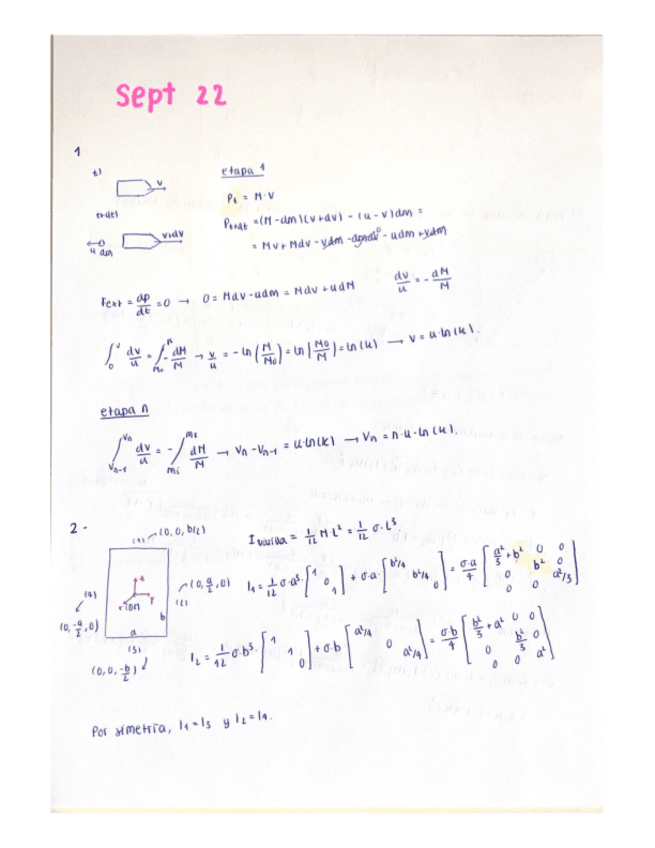 Sept 22
1
t)
v
t+dt)
v+dv
u dm
etapa 1
Pt = M·V
Pt+dt = (M-dm)(v+dv) - (u-v)dm =
= Mv + Mdv - vdm - dmdv⁰ - udm + vdm
Fext = dp/dt = 0 → 0 = Mdv - udm = Mdv + udM    dv/u = - dM/M
∫₀^v dv/u = ∫_{M₀}^M - dM/M → v/u = -ln(M/M₀) = ln(M₀/M) = ln(k) → v = u·ln(k).
etapa n
∫_{Vn-1}^{Vn} dv/u = - ∫_{mi}^{mf} dM/M → Vn - Vn-1 = u·ln(k) → Vn = n·u·ln(k).
2-
(1) (0, 0, b/2)
(4)
(0, -a/2, 0)
z
x
y
CDM
(0, a/2, 0)
(2)
b
a
(3)
(0, 0, -b/2)
I varilla = 1/12 M L² = 1/12 σ·L³
I₁ = 1/12 σ·a³ · [1 0 1] + σ·a· [b²/4 b²/4 0] = σ·a/4 [a²/3 + b² 0 0 0 b² 0 0 0 a²/3]
I₂ = 1/12 σ·b³ · [1 1 0] + σ·b [a²/4 0 a²/4] = σ·b/4 [b²/3 + a² 0 0 0 b²/3 0 0 0 a²]
Por simetría, I₁ = I₃ y I₂ = I₄.